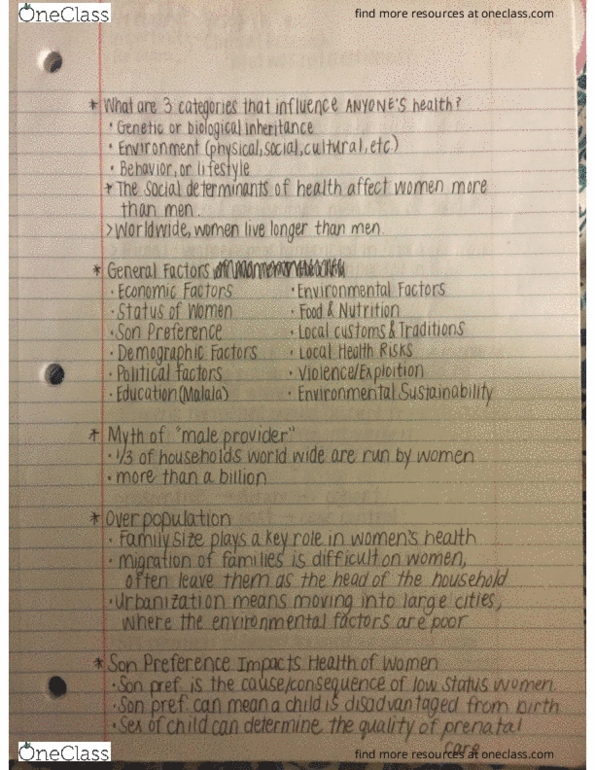 OneClass
find more resources at oneclass.com
* What are 3 categories that influence ANYONE'S health?
• Genetic or biological inheritance
• Environment (physical, social, cultural, etc.)
• Behavior, or lifestyle
* The social determinants of health affect women more
than men.
> Worldwide, women live longer than men.
* General Factors
• Economic Factors • Environmental Factors
• Status of Women • Food & Nutrition
• Son Preference • Local customs & Traditions
• Demographic Factors • Local Health Risks
• Political factors • Violence/Exploition
• Education (Malala) • Environmental Sustainability
* Myth of "male provider"
• 1/3 of households world wide are run by women
• more than a billion
* Overpopulation
• Family size plays a key role in women's health
• migration of families is difficult on women,
often leave them as the head of the household
• Urbanization means moving into large cities,
where the environmental factors are poor
* Son Preference Impacts Health of Women
• Son pref. is the cause/consequence of low status women.
• Son pref. can mean a child is disadvantaged from birth
• Sex of child can determine the quality of prenatal
care
OneClass
find more resources at oneclass.com